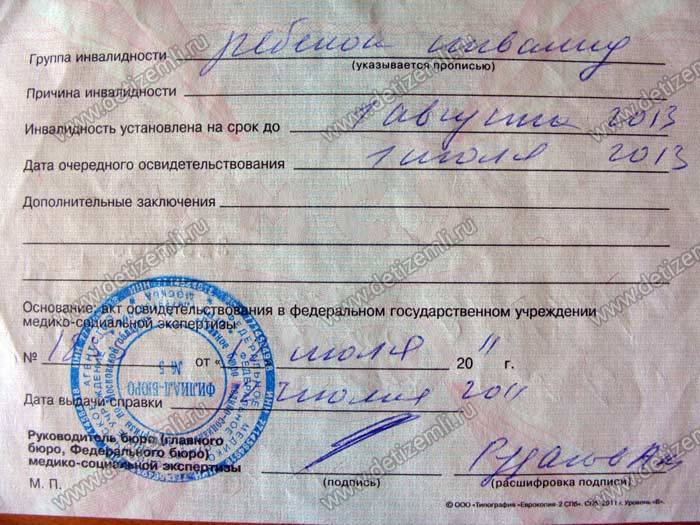 Группа инвалидности ребенок инвалид
(указывается прописью)
Причина инвалидности
Инвалидность установлена на срок до августа 2013
Дата очередного освидетельствования 1 июля 2013
Дополнительные заключения
Основание: акт освидетельствования в федеральном государственном учреждении
медико-социальной экспертизы
№ от « июля 20 11 г.
Дата выдачи справки июля 2011
Руководитель бюро (главного
бюро, Федерального бюро)
медико-социальной экспертизы
(подпись) (расшифровка подписи)
М. П.
© ООО «Типография «Еврокопия-2 СПб». СПб. 2011 г. Уровень «В».
ФИЛИАЛ-БЮРО
№ 5
МОСКВА
www.detizemli.ru